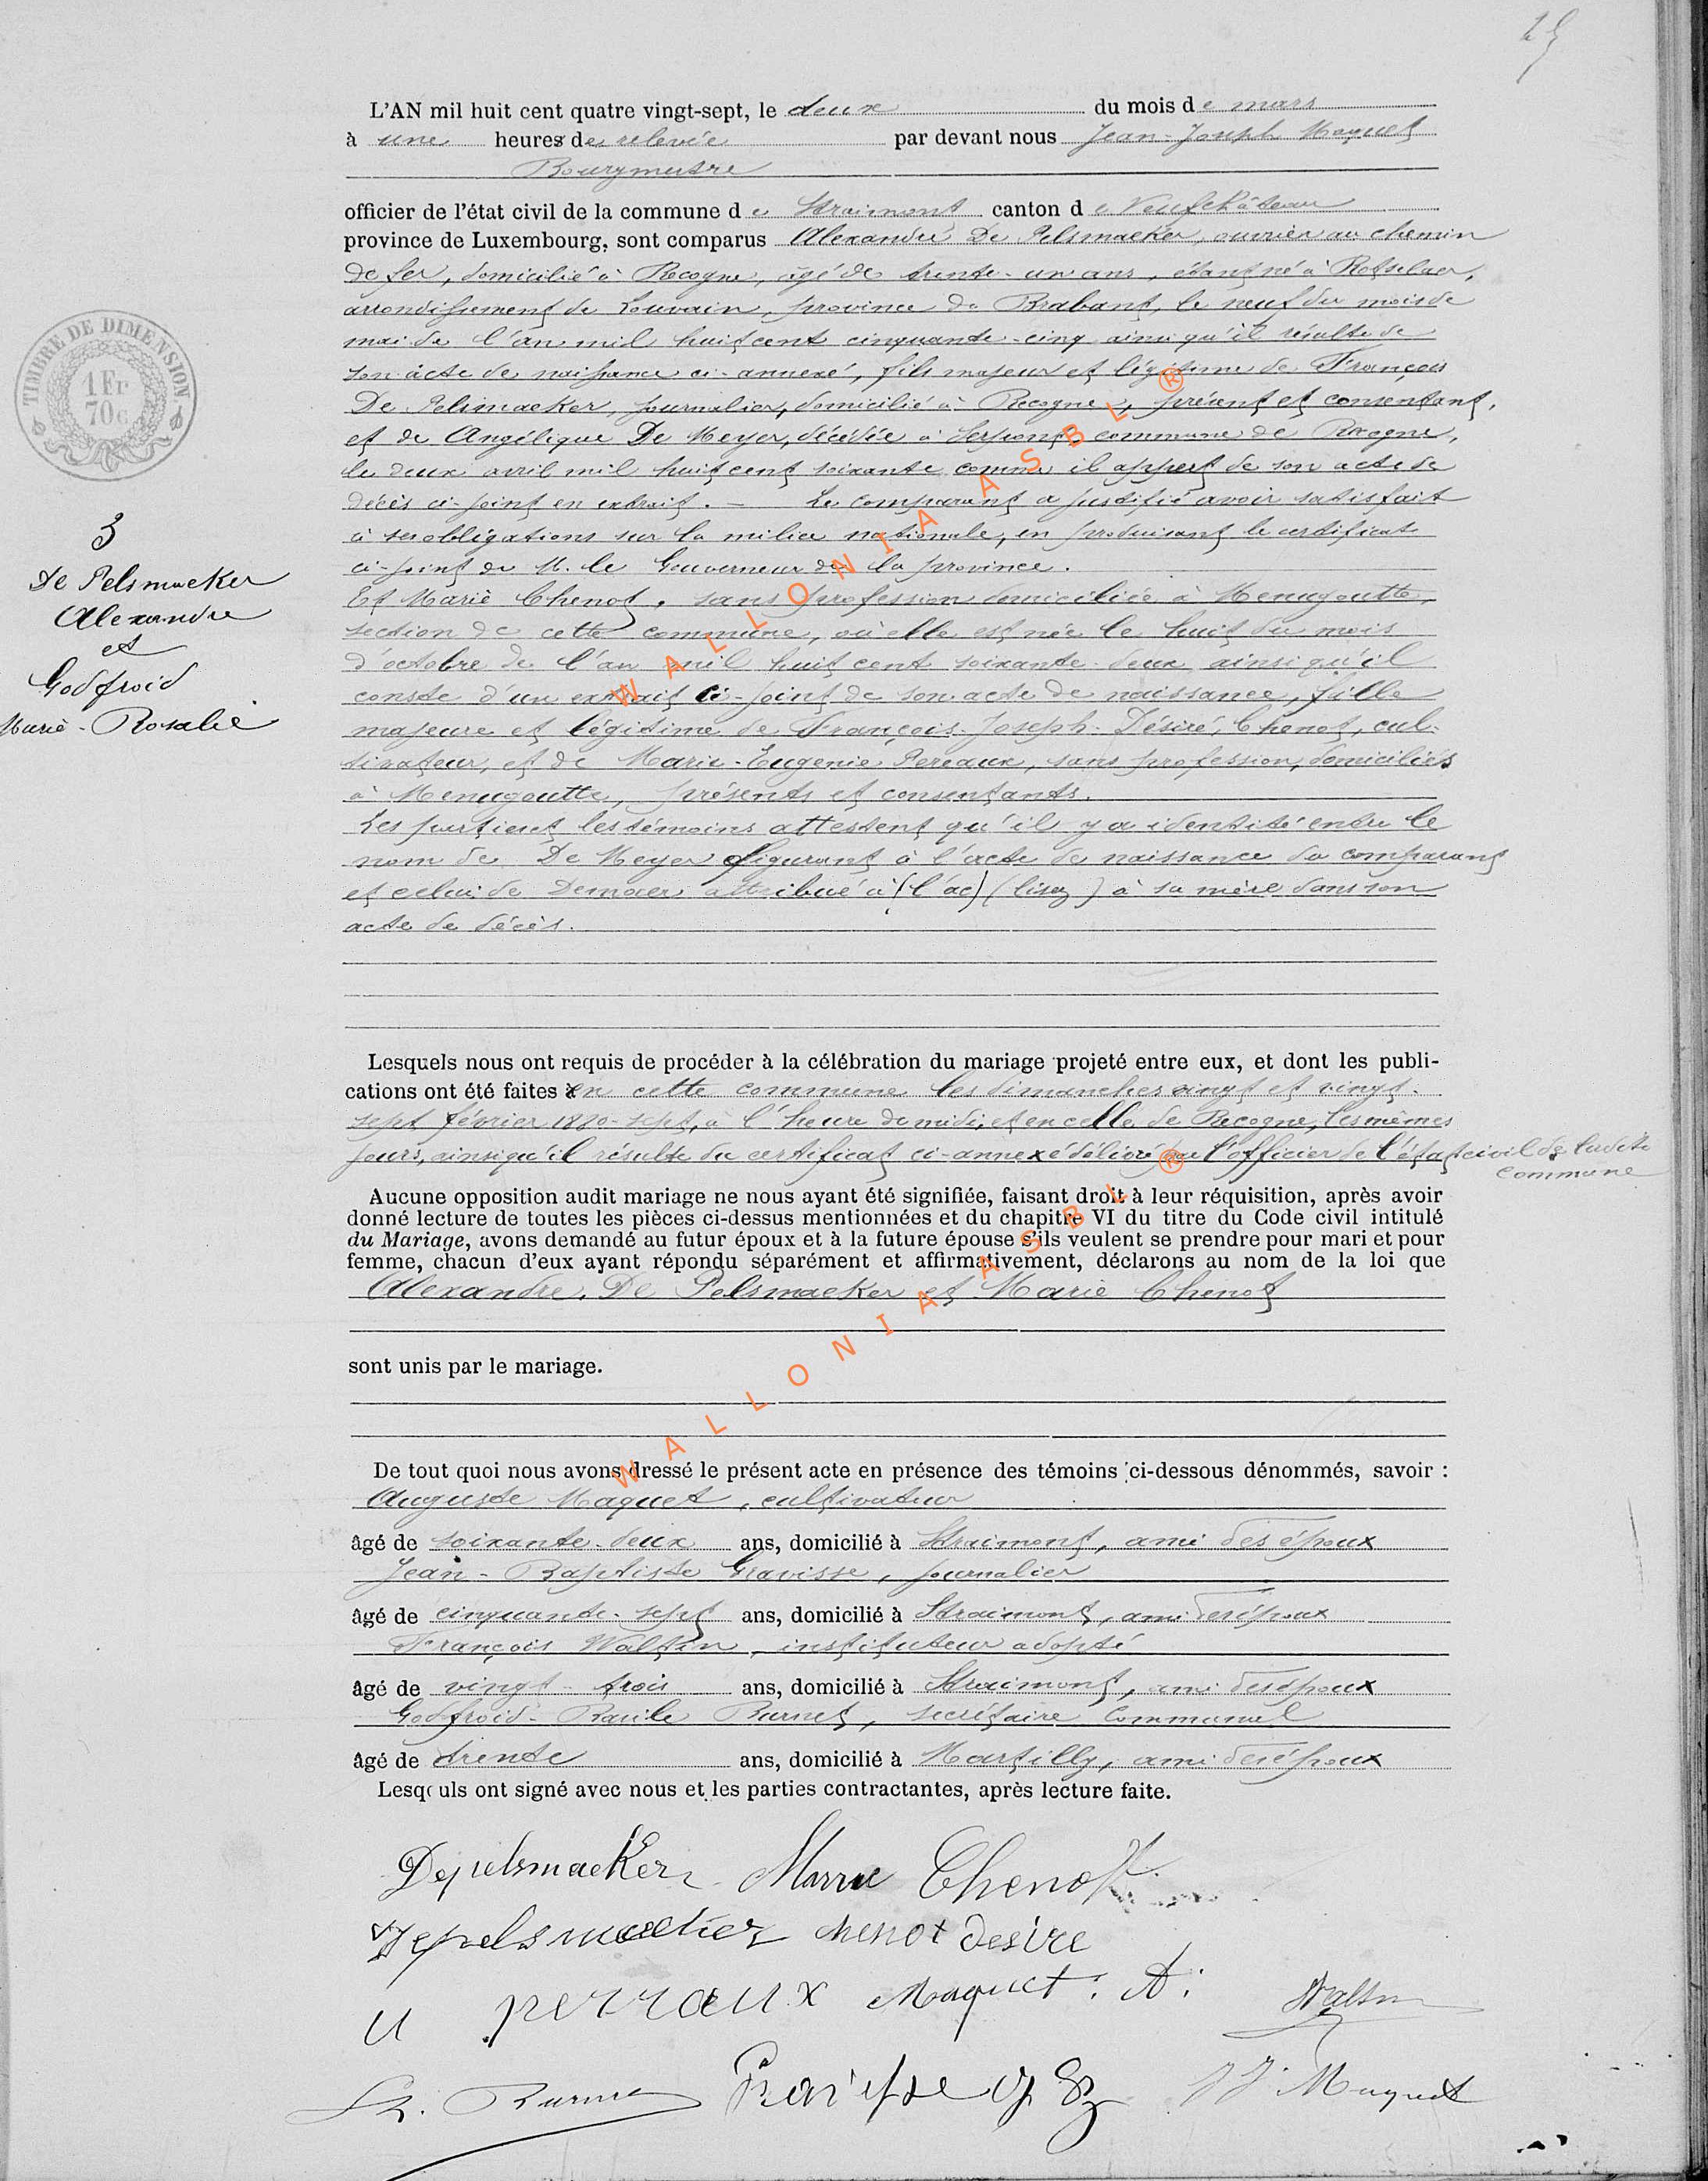 25
L'AN mil huit cent quatre vingt-sept, le deux du mois de mars
à une heures de relevée par devant nous Jean-Joseph Maquet
Bourgmestre
officier de l'état civil de la commune de Straimont canton de Neufchâteau
province de Luxembourg, sont comparus Alexandre De Pelsmaeker, ouvrier au chemin
de fer, domicilié à Recogne, âgé de trente-un ans, étant né à Rotselaer,
arrondissement de Louvain, province de Brabant, le neuf du mois de
mai de l'an mil huit cent cinquante-cinq ainsi qu'il résulte de
son acte de naissance ci-annexé, fils majeur et légitime de François
De Pelsmaeker, journalier, domicilié à Recogne, présent et consentant,
et de Angélique De Meyer, décédée à commune de Recogne,
le deux avril mil huit cent soixante comme il appert de son acte de
décès ci-joint en extrait. — Le comparant a justifié avoir satisfait
à ses obligations sur la milice nationale, en produisant le certificat
ci-joint de M. le Gouverneur de la province.
Et Marie Chenot, sans profession domiciliée à Menugoutte,
section de cette commune, où elle est née le huit du mois
d'octobre de l'an mil huit cent soixante-deux ainsi qu'il
conste d'un extrait ci-joint de son acte de naissance, fille
majeure et légitime de François-Joseph-Désiré, Chenot, cul-
tivateur, et de Marie-Eugenie Pereaux, sans profession, domiciliés
à Menugoutte, présents et consentants.
Les parties et les témoins attestent qu'il y a identité entre le
nom de De Meyer figurant à l'acte de naissance du comparant
et celui de Demoer attribué à (l'ac) (lisez) à sa mère dans son
acte de décès.
TIMBRE DE DIMENSION
1 Fr
70c
3
De Pelsmaeker
Alexandre
et
Godfroid
Marie-Rosalie
Lesquels nous ont requis de procéder à la célébration du mariage projeté entre eux, et dont les publi-
cations ont été faites en cette commune les dimanches vingt et vingt-
sept février 1880-sept, à l'heure de midi, et en celle de Recogne, les mêmes
jours, ainsi qu'il résulte du certificat ci-annexé délivré par l'officier de l'état civil de ladite
commune
Aucune opposition audit mariage ne nous ayant été signifiée, faisant droit à leur réquisition, après avoir
donné lecture de toutes les pièces ci-dessus mentionnées et du chapitre VI du titre du Code civil intitulé
du Mariage, avons demandé au futur époux et à la future épouse s'ils veulent se prendre pour mari et pour
femme, chacun d'eux ayant répondu séparément et affirmativement, déclarons au nom de la loi que
Alexandre, De Pelsmaeker et Marie Chenot
sont unis par le mariage.
De tout quoi nous avons dressé le présent acte en présence des témoins ci-dessous dénommés, savoir :
Auguste Maquet, cultivateur
âgé de soixante-deux ans, domicilié à Straimont, ami des époux
Jean-Baptiste Gravisse, journalier
âgé de cinquante-sept ans, domicilié à Straimont, ami des époux
François Waltzin, instituteur adopté
âgé de vingt-trois ans, domicilié à Straimont, ami des époux
Godfroid- Burnet, secrétaire communal
âgé de trente ans, domicilié à Martilly, ami des époux
Lesquels ont signé avec nous et les parties contractantes, après lecture faite.
Depelsmaeker Marie Chenot
depelsmaeker chenot desire
perraux Maquet: A:
Burnet J J Maquet
WALLONIA ASBL ®
WALLONIA ASBL ®